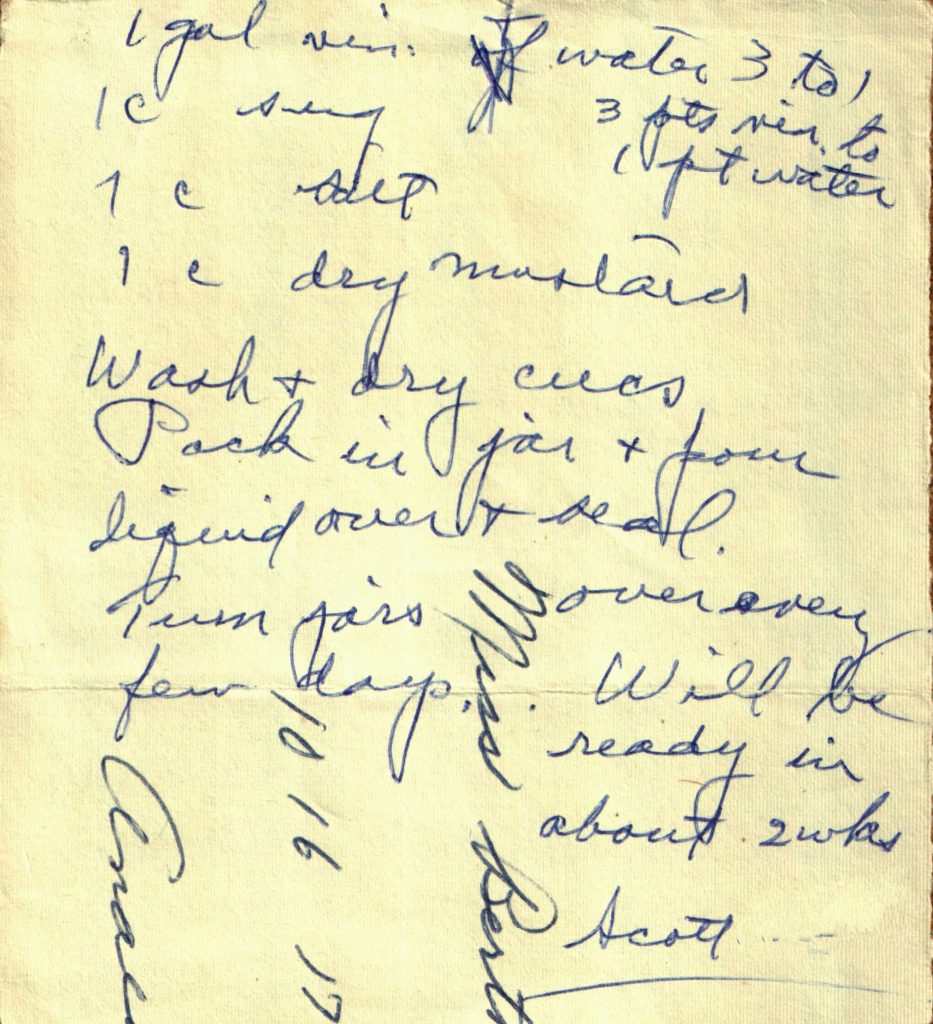 1 gal vin. of water 3 to 1
1 c sug 3 pts vin. to
1 pt water
1 c salt
1 c dry mustard
Wash + dry cucs
Pack in jar + pour
liquid over + seal.
Turn jars over every
few days. Will be
ready in
about 2 wks
Scott
Miss Bert
10 16 17